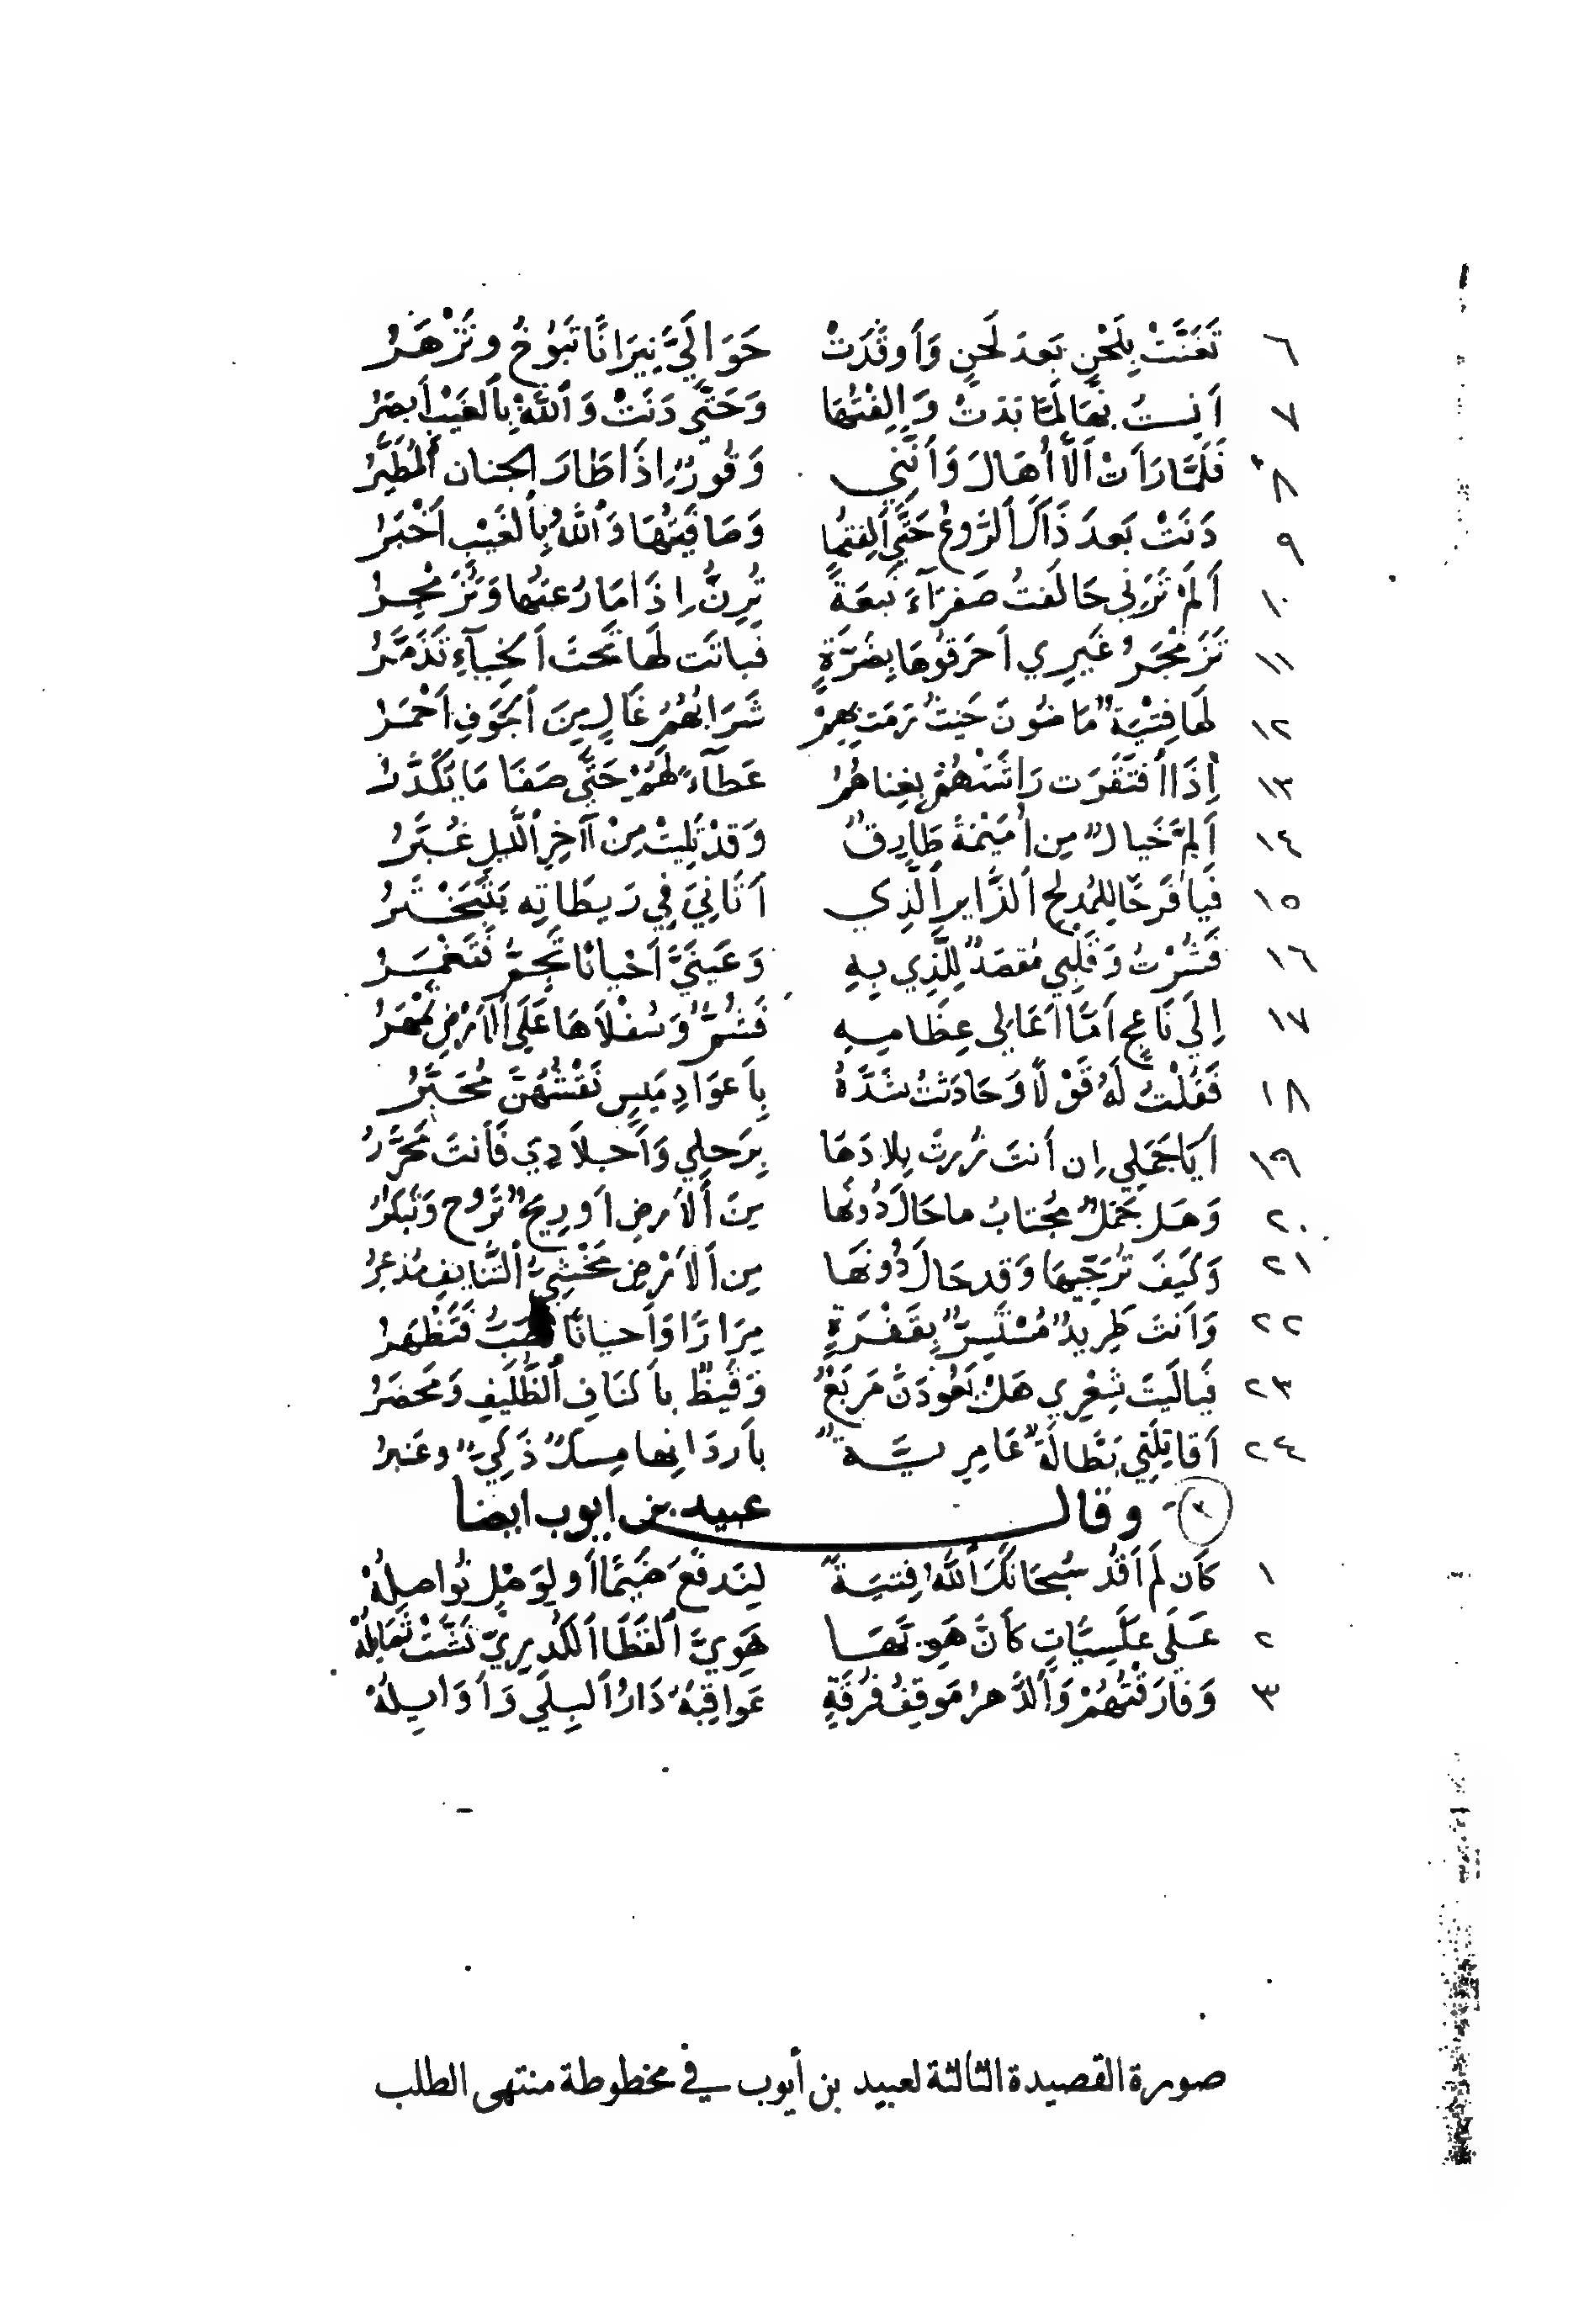 ٦ تَغَنَّتْ بِلَحْنٍ بَعدَ لَحنٍ وَأَوقَدَتْ حَوَالَيَّ نِيرَانًا تَبُوْخُ وتَزْهَرُ
٧ أَنِستُ بِهَا لَمَّا بَدَتْ وَأَلِفْتُهَا وَحَتَّى دَنَتْ وَٱللَّهُ بِٱلغَيْبِ أَبصَرُ
٨ فَلَمَّا رَأَتْ أَلَّا أُهَالَ وَأَنَّنِي وَقُورٌ إِذَا طَارَ الجنان ٱلمُطَيَّرُ
٩ دَنَتْ بَعدَ ذَاكَ ٱلرَّوعِ حَتَّى أَلِفتُها وَصَافَيتُهَا وَٱللَّهُ بِٱلغَيْبِ أَخْبَرُ
١٠ أَلَمْ تَرَنِي حَالَفتُ صَفرَآءَ نَبعَةً تُرِنُّ إِذَا مَا رُعتُها وَتُزَمْجِرُ
١١ تَزَمْجَرُ غَيرِي أَحرَقُوهَا بِضَرَّةٍ فَباتَت لَهَا تَحتَ ٱلخِبَآءِ تَذَمَّرُ
١٢ لَهَا فِتْيَةٌ مَاضُونَ حَيثُ رَمَت بِهِمْ شَرَابُهُمُ غَالٍ مِنَ ٱلجَوفِ أَحْمَرُ
١٣ إِذَا ٱفتَقَرَت رَاشَتْهُمُ بِغِناهُمُ عَطَآءً لَهُمْ حَتَّى صَفَا مَا يُكَدَّرُ
١٤ أَلَمَّ خَيالٌ مِن أُمَيْمَةَ طَارِقٌ وَقَدْ تَلِيَتْ مِنْ آخِرِ ٱللَّيلِ غُبَّرُ
١٥ فَيَا فَرَحًا لِلمُدلِجِ ٱلزَّايرِ ٱلَّذِي أَتَانِيَ فِي رَيطَاتِهِ يَتَبَخْتَرُ
١٦ فَثُرْتُ وَقَلبِي مُقصَدٌ لِلَّذِي بِهِ وَعَينَيَّ أَحْيانًا تَجِمُّ فَتَغْمِرُ
١٧ إِلَى نَاعِجٍ أَمَّا أَعَالِي عِظَامِهِ فَشُمٌّ وَسُفْلَاهَا عَلَى ٱلأَرْضِ تَمْهَرُ
١٨ فَقُلْتُ لَهُ قَوْلًا وَحَادَثْتُ شَدَّهُ بِأَعوَادِ مَيسٍ نَقْشُهُنَّ مُحَبَّرُ
١٩ أَيَا جَمَلِي إِن أَنتَ زُرتَ بِلادَهَا بِرَحلِي وَأَجلَادِي فَأَنتَ مُحَرَّرُ
٢٠ وَهَل جَمَلٌ مُجتابُ ما حَالَ دُونَها مِنَ ٱلأَرضِ أَو رِيحٌ تَرُوح وَتُبكِرُ
٢١ وَكَيفَ تُرَجِّيهَا وَقد حَالَ دُونَهَا مِن ٱلأَرْضِ مَخْشِيُّ ٱلتَّنَايِفِ مُذعِرُ
٢٢ وَأَنتَ طَرِيدٌ مُسْتَسِرٌّ بِقَفْرَةٍ مِرَارًا وَأَحيانًا تُصَبُّ فَتَظْهَرُ
٢٣ فَيالَيتَ شِعْرِي هَلْ يَعُودَنْ مَربَعٌ وَقَيظٌ بأَكنَافِ ٱلظَّلَيفِ وَمَحضَرُ
٢٤ أَقاتِلَتِي بَطَّالَةٌ عَامِرِيَّةٌ بأَردَانِها مِسكٌ ذَكِيٌّ وعَنبرُ
٣ - وقال عبيد بن ايوب ايضا
١ كَأَن لَم أَقُد سُبحَانَكَ ٱللَّهُ فِتيَةً لِنَدفَعَ ضَيمًا أَو لِوَصْلٍ نُواصِلُهْ
٢ عَلَى عَلَسِيَّاتٍ كَأَنَّ هَوِيَّهَا هَوِيُّ ٱلقَطَا ٱلكُدرِيِّ نَشَّتْ ثَمَايِلُهْ
٣ وَفَارَقْتُهُمْ وَٱلدَّهرُ مَوقِفُ فُرقَةٍ عَواقِبُهُ دَارُ ٱلبِلَى وَأَوَايِلُهْ
صورة القصيدة الثالثة لعبيد بن أيوب في مخطوطة منتهى الطلب